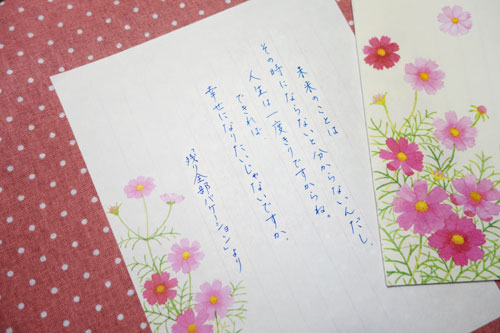 未来のことは
その時にならないと分からないんだし、
人生は一度きりですからね。
できれば
幸せになりたいじゃないですか。
「残り全部バケーション」より